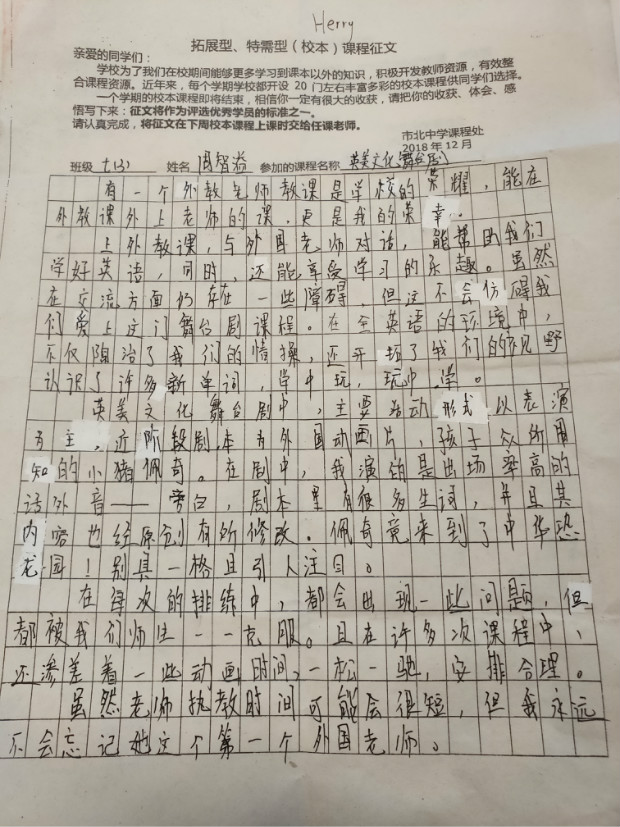 Herry
拓展型、特需型（校本）课程征文
亲爱的同学们：
学校为了我们在校期间能够更多学习到课本以外的知识，积极开发教师资源，有效整
合课程资源。近年来，每个学期学校都开设 20 门左右丰富多彩的校本课程供同学们选择。
一个学期的校本课程即将结束，相信你一定有很大的收获，请把你的收获、体会、感
悟写下来：征文将作为评选优秀学员的标准之一。
请认真完成，将征文在下周校本课程上课时交给任课老师。
市北中学课程处
2018 年 12 月
班级 七(3) 姓名 周智 参加的课程名称 英美文化舞台剧
有一个外教老师教课是学校的荣耀，能在
外教课外上老师的课，更是我的荣幸。
上外教课，与外国老师对话，能帮助我们
学好英语，同时，还能享受学习的乐趣。虽然
在交流方面仍存在一些障碍，但这不会仿碍我
们爱上这门舞台剧课程。在全英语的环境中，
不仅陶冶了我们的情操，还开拓了我们的视野
认识了许多新单词，学中玩，玩中学。
英美文化舞台剧中，主要活动形式以表演
为主，近阶段剧本为外国动画片，孩子众所周
知的小猪佩奇。在剧中，我演的是出场率高的
话外音——旁白，剧本里有很多生词，并且其
内容也经原创有所修改。佩奇竟来到了中华恐
龙园！别具一格且引人注目。
在每次的排练中，都会出现一些问题，但
都被我们师生一一克服。且在许多次课程中，
还渗差着一些动画时间，一松一驰，安排合理。
虽然老师执教时间可能会很短，但我永远
不会忘记她这个第一个外国老师。